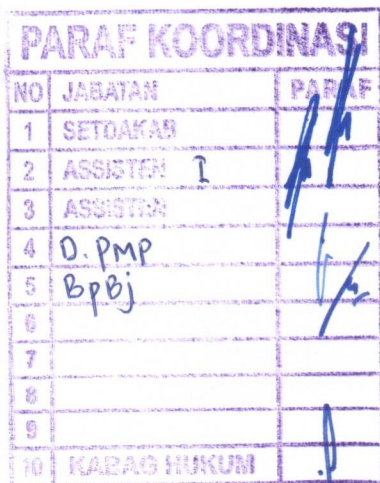 PARAF KOORDINASI
NO JABATAN PARAF
1 SETDAKAB
2 ASSISTEN I
3 ASSISTEN
4 D. PMP
5 BPBj
6
7
8
9
10 KABAG HUKUM